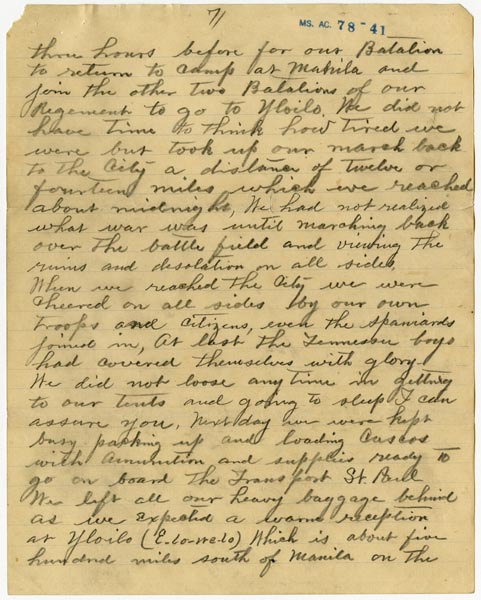 7/
MS. AC. 78-41
three hours before for our Batalion
to return to camp at Manila and
join the other two Batalions of our
Regement to go to Yloilo, We did not
have time to think how tired we
were but took up our march back
to the City a distance of twelve or
fourteen miles which we reached
about midnight, We had not realized
what war was until marching back
over the battle field and viewing the
ruins and desolation on all sides,
When we reached the City we were
cheered on all sides by our own
troops and citizens, even the Spaniards
joined in, At last the Tennessee boys
had covered themselves with glory
We did not loose any time in getting
to our tents and going to sleep I can
assure you, Next day we were kept
busy packing up and loading Cascos
with ammunition and supplies ready to
go on board the Transport St. Paul
We left all our heavy baggage behind
as we expected a warm reception
at Yloilo (E-lo-we-lo) Which is about five
hundred miles south of Manila on the